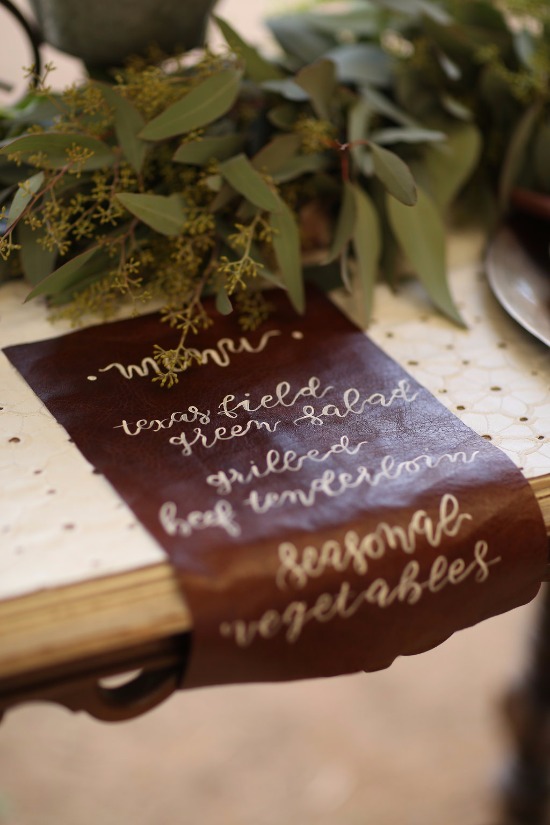 . menu .
texas field
green salad
grilled
beef tenderloin
seasonal
vegetables